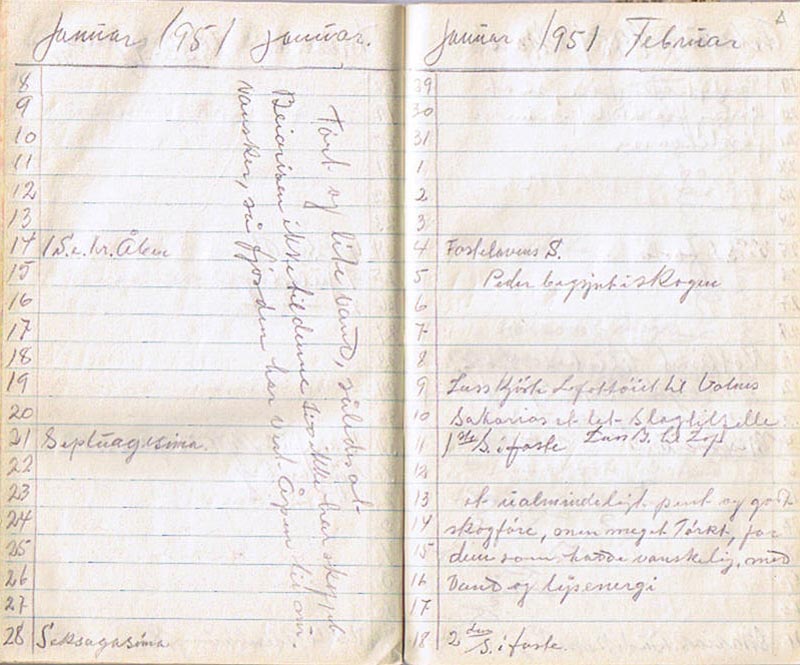 Januar 1951 Januar.
8
9
10
11
12
13
14 1 S. e. kr. Åben
15
16
17
18
19
20
21 Septuagesima.
22
23
24
25
26
27
28 Seksagasima
Tørt og lite vand, således at
Beiarisen ikke til denne
vansker, så fjorden har vert åpen til
Januar 1951 Februar
29
30
31
1
2
3
4 Fastelavens S.
5 Peder begynt i skogen
6
7
8
9 Lars til
10 Sakarias et let Slagtilfelle
11 1ste S. i faste Lars B. til
12
13 et ualmindeligt pent og godt
14 skogføre, men meget Tørkt, for
15 dem som hadde vanskelig, med
16 Vand og lysenergi
17
18 2den S. i faste.